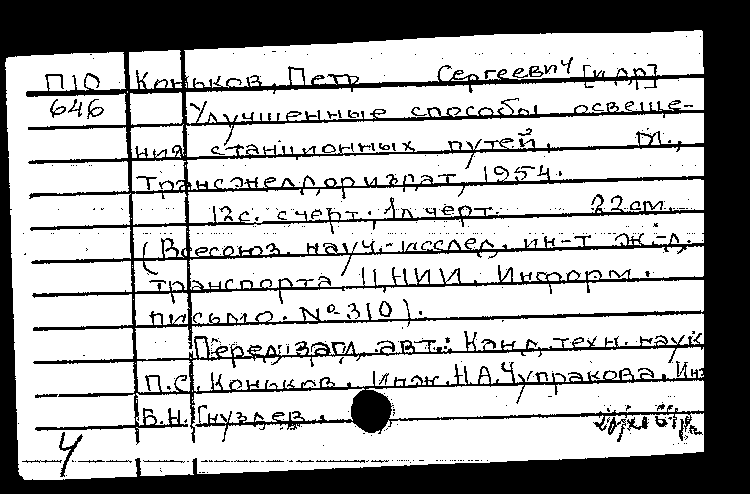 П10 Коньков, Петр Сергеевич [и др]
646 Улучшенные способы освеще-
ния станционных путей, М.,
Трансжелдориздат, 1954.
12с. с черт.; 1л черт. 22см.
(Всесоюз. науч.-исслед. ин-т ж.-д.
транспорта ЦНИИ. Информ.
письмо. № 310).
Перед загл. авт.: Канд. техн. наук
П.С. Коньков. Инж. Н.А. Чупракова. Инж
В.Н. Гнуздев.
4